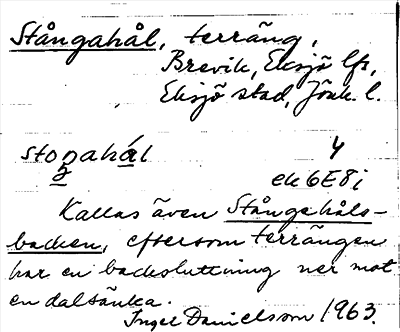 Stångahål, terräng,
Brevik, Eksjö lfs,
Eksjö stad, Jönk. l.
stoŋahál 4
ek 6E8i
Kallas även Stångehåls-
backen, eftersom terrängen
har en backsluttning ner mot
en dalsänka.
Inger Danielsson 1963.